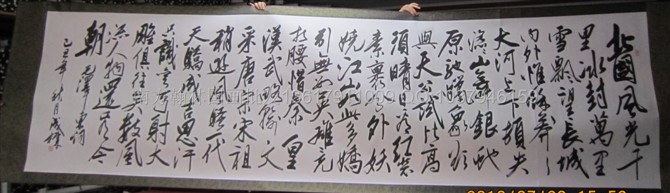 北國風光千
里冰封萬里
雪飄望長城
內外惟餘莽莽
大河上下頓失
滔滔山舞銀蛇
原馳蠟象欲
與天公試比高
須晴日看紅裝
素裹分外妖
嬈江山如此多嬌
引無數英雄競
折腰惜秦皇
漢武略輸文
采唐宗宋祖
稍遜風騷一代
天驕成吉思汗
只識彎弓射大
雕俱往矣數風
流人物還看今
朝
毛澤東詞
年秋月